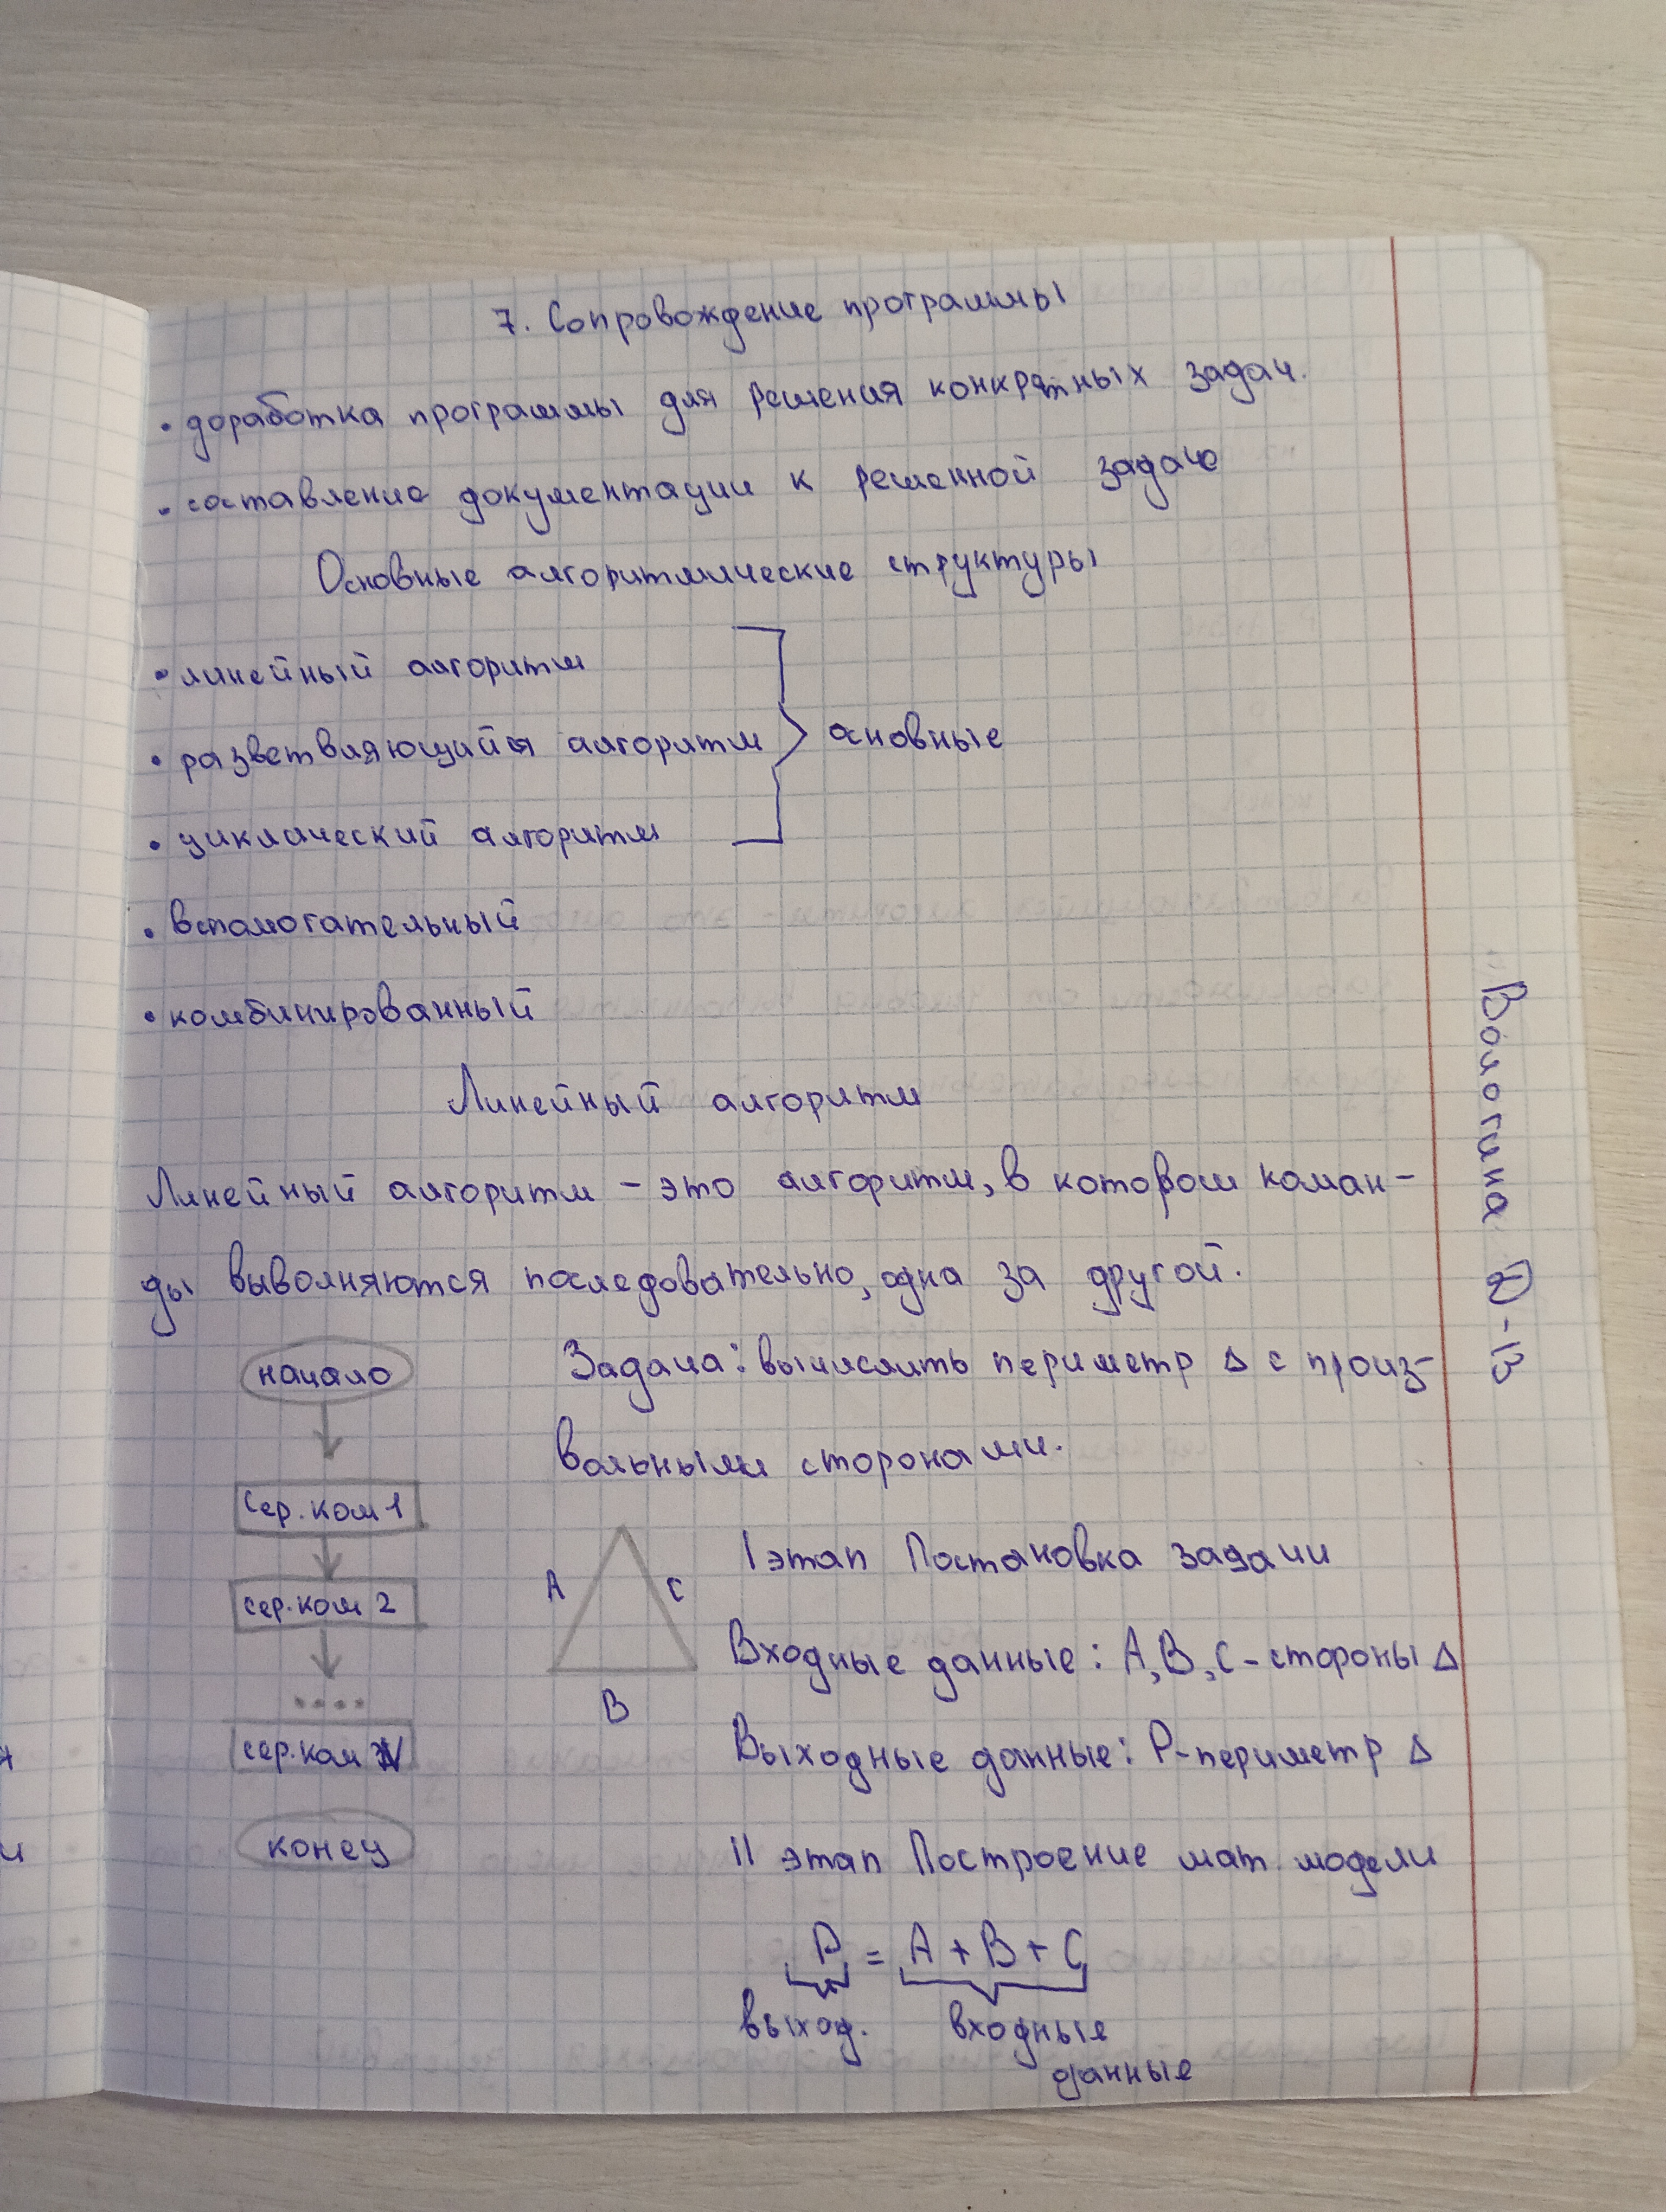 7. Сопровождение программы
• доработка программы для решения конкретных задач.
• составление документации к решенной задаче
Основные алгоритмические структуры
• линейный алгоритм
• разветвляющийся алгоритм
основные
• циклический алгоритм
• вспомогательный
• комбинированный
Линейный алгоритм
Линейный алгоритм – это алгоритм, в котором коман-
ды выполняются последовательно, одна за другой.
начало
сер. ком 1
сер. ком 2
....
сер. ком N
конец
Задача: вычислить периметр Δ с произ-
вольными сторонами.
A
C
B
I этап Постановка задачи
Входные данные: A, B, C – стороны Δ
Выходные данные: P – периметр Δ
II этап Построение мат. модели
P = A + B + C
выход. входные
данные
Вологина